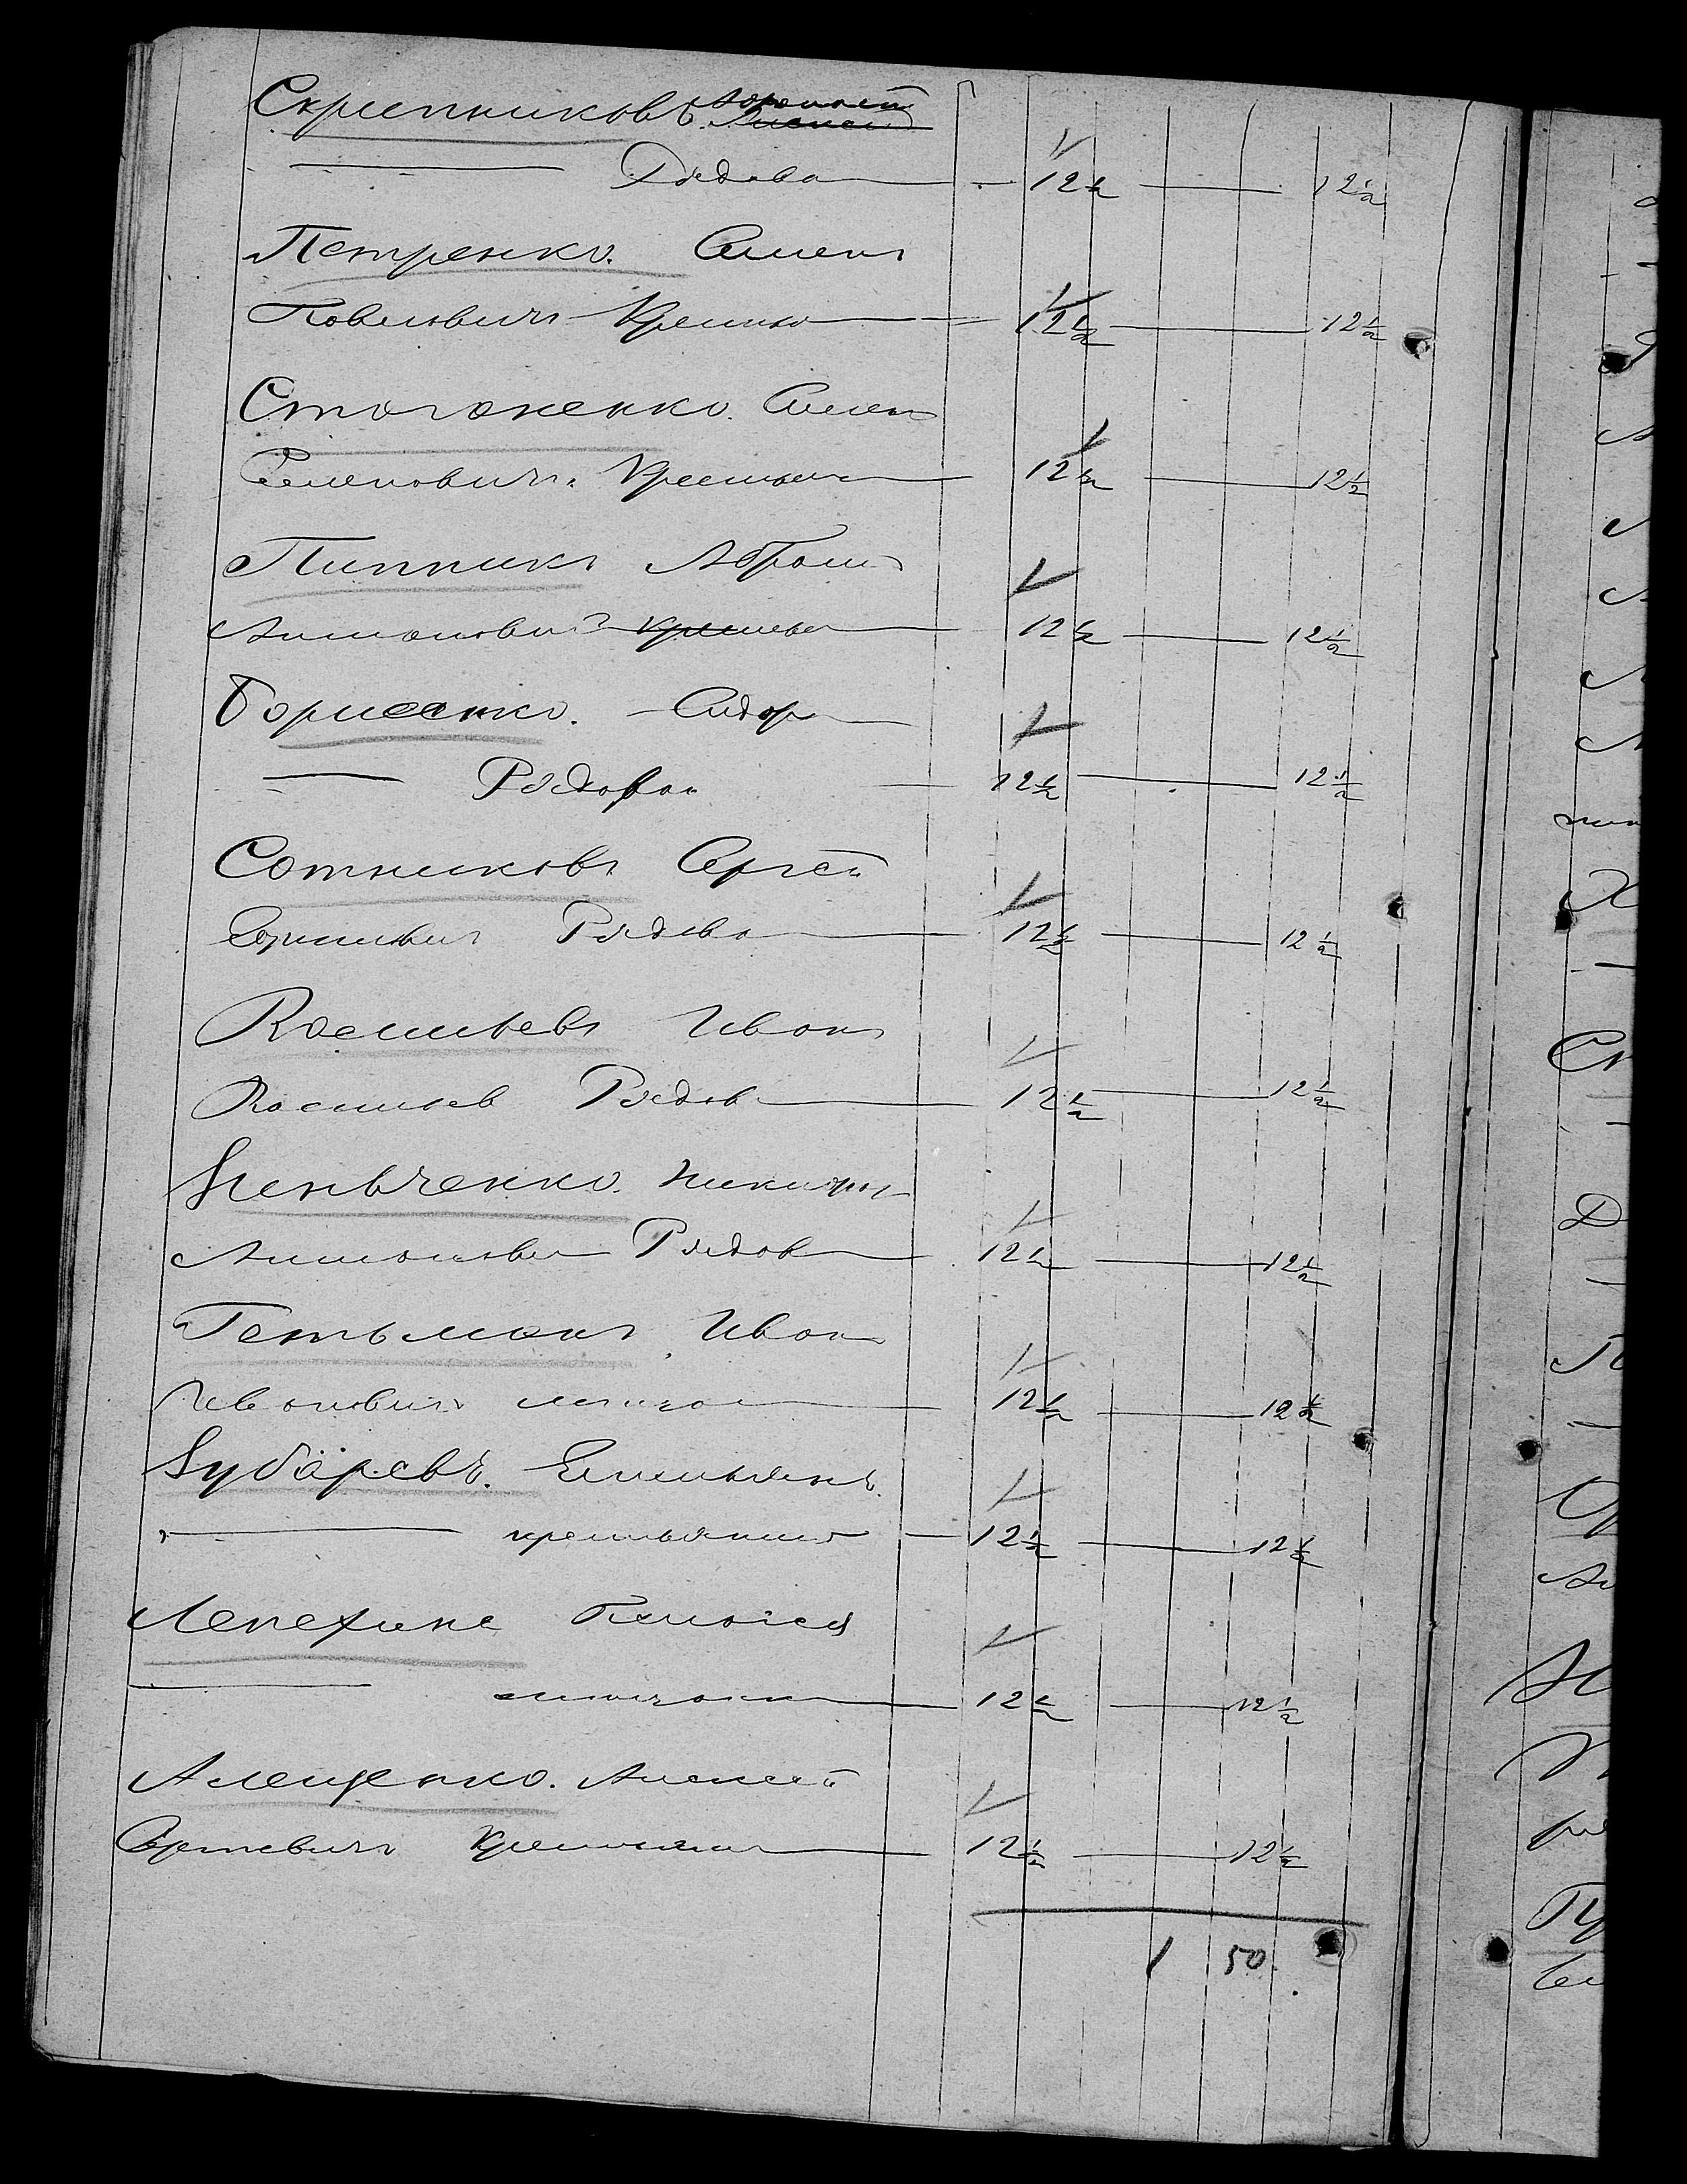 Скрипниковъ.
Рядова 12½ 12½
Петренко. Семенъ
Павловичъ 12½ 12½
Стогоненко. Семен
Семеновичъ. Крестьян 12½ 12½
Пипникъ Абрам
Антонович 12½ 12½
Борисенко. Сидор
Рядовой 12½ 12½
Сотниковъ Сергей
Рядово 12½ 12½
Васильевъ Иванъ
Васильев Рядов 12½ 12½
Зеньченко. Никифор
Антонови Рядов 12½ 12½
Гетьманъ Иван
Ивановичъ 12½ 12½
Зубаревъ. Емельянъ.
крестьянин 12½ 12½
Лепехина
12½ 12½
Алещенко. Алексей
Сергеевичъ Крестьянин 12½ 12½
1 50